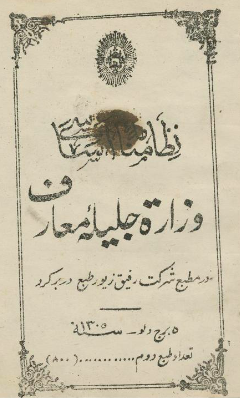 نظامنامه اساسی
وزارة جلیله معارف
در مطبع شرکت رفیق زیور طبع در بر کرد
۵ برج دلو سنه ۱۳۰۵
تعداد طبع دوم ............ (۸۰۰)